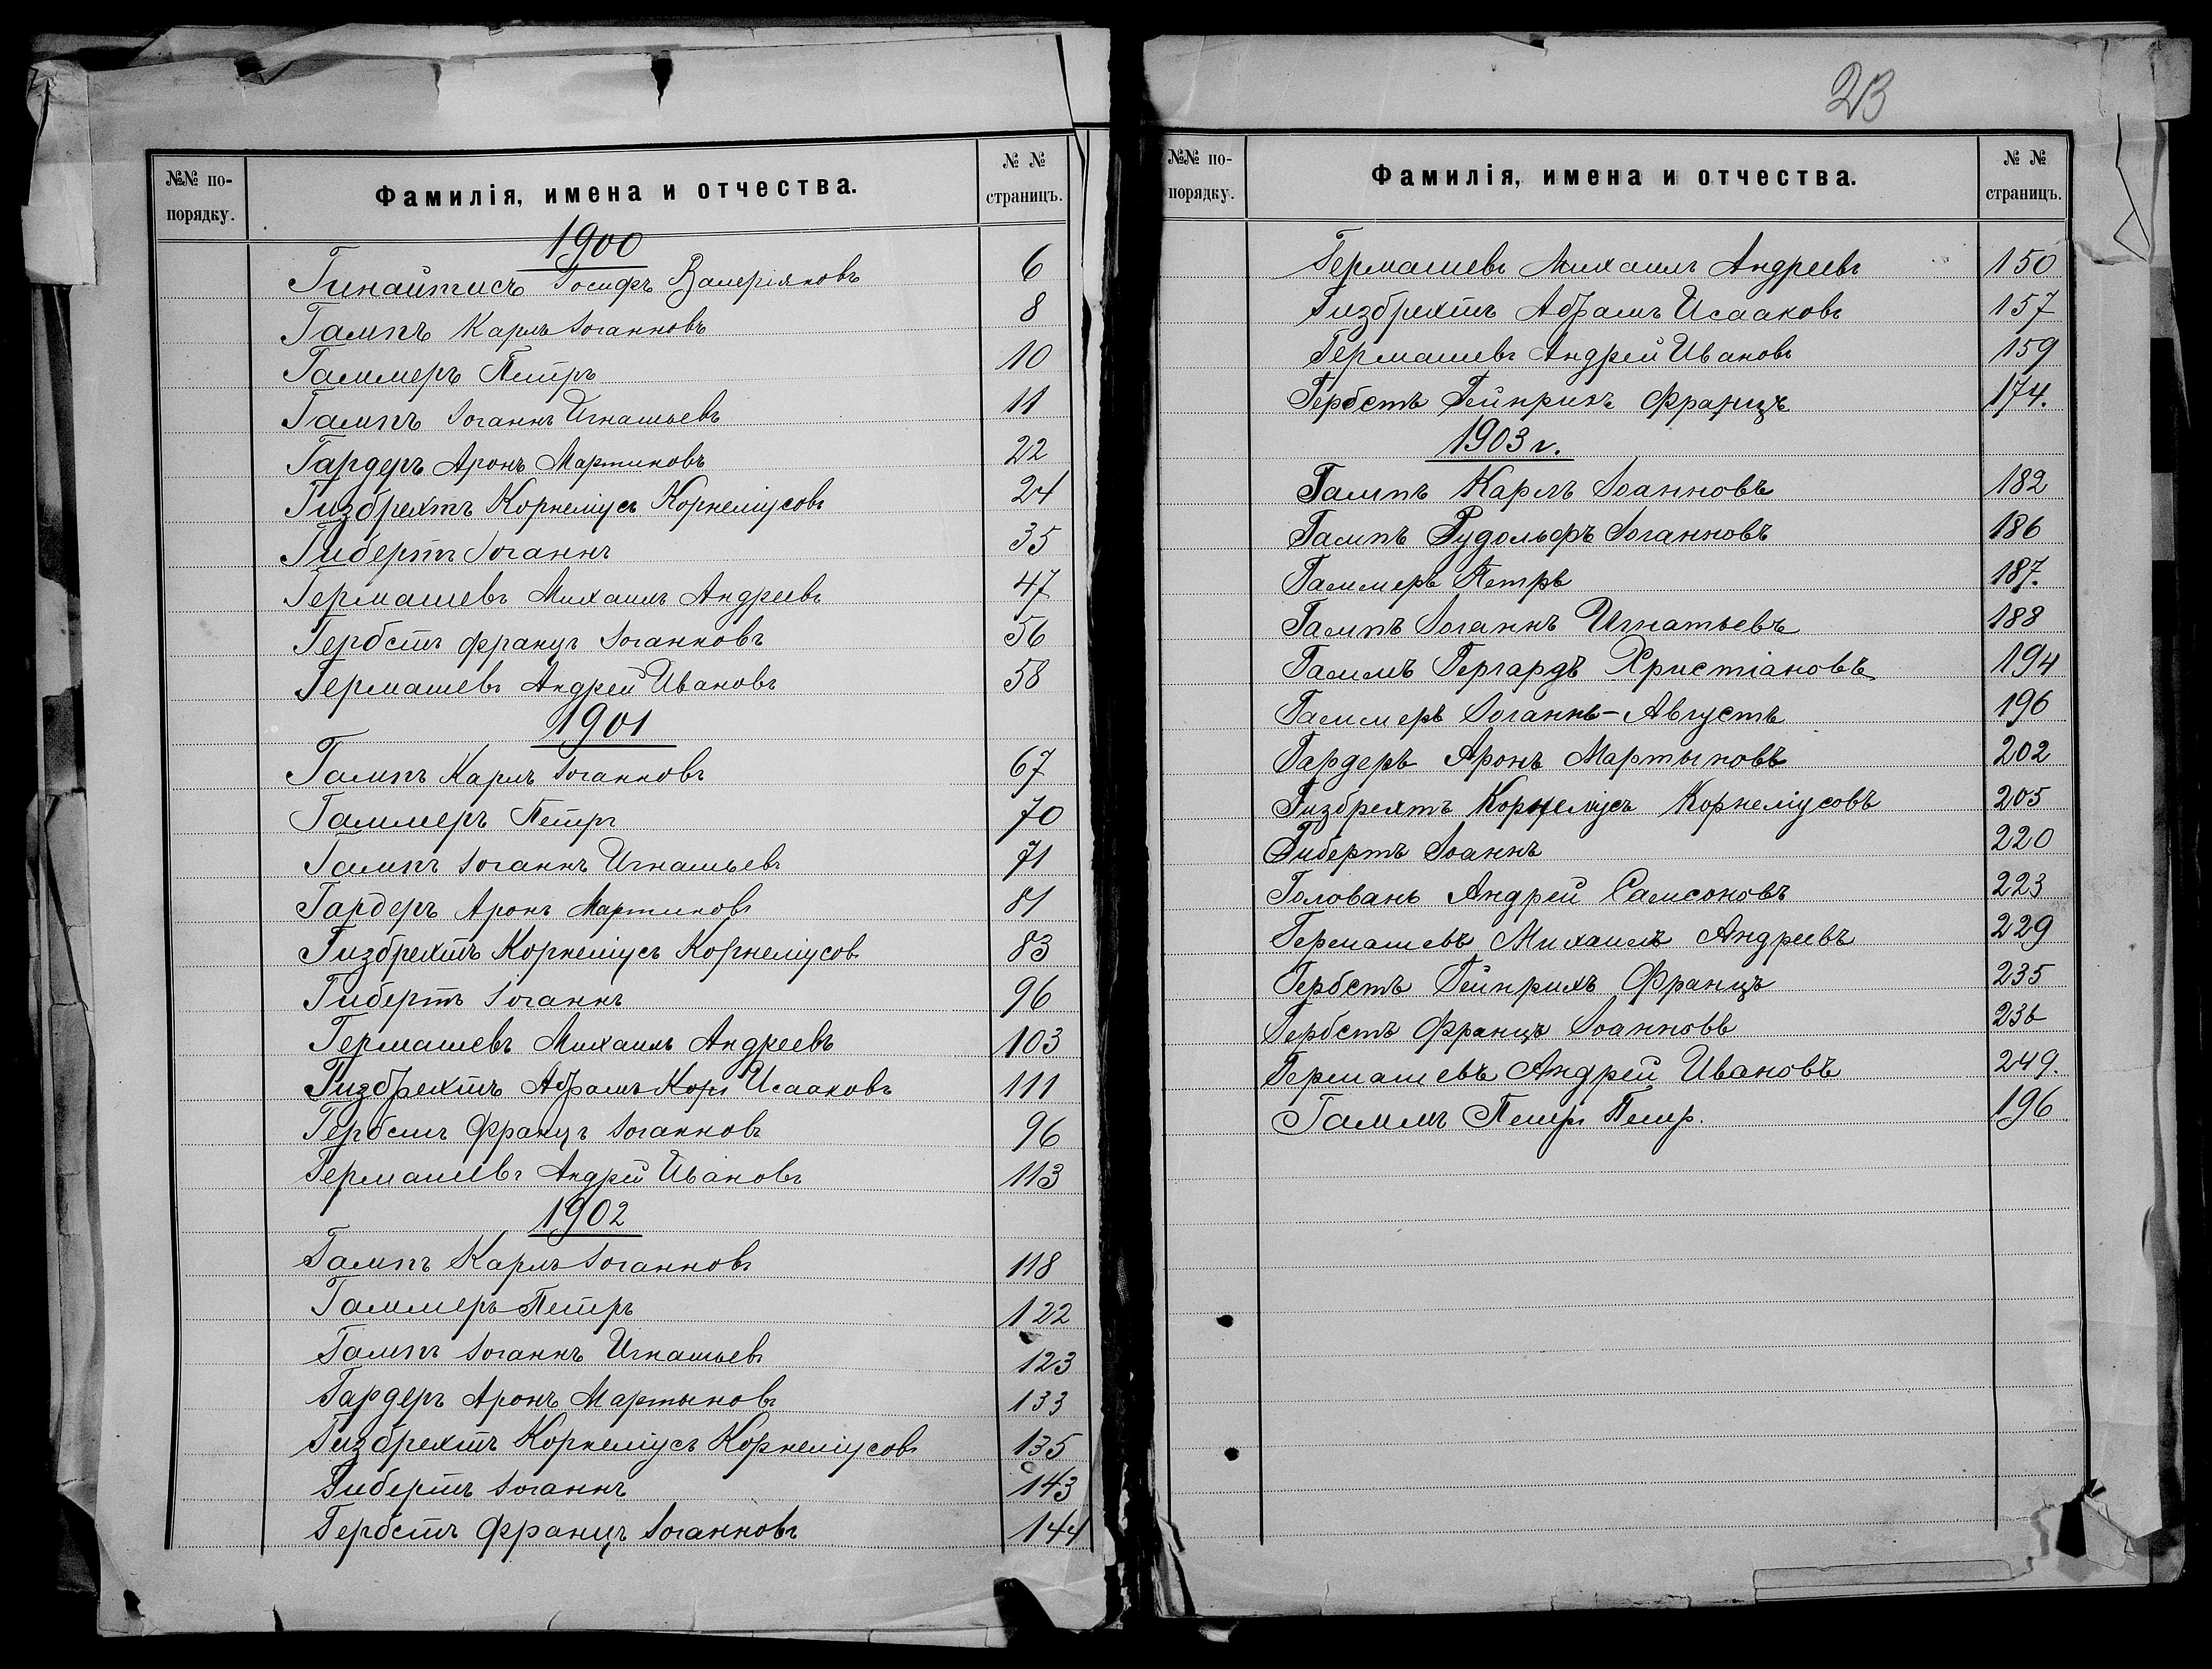 №№ по-порядку. Фамилія, имена и отчества. № № страницъ.
1900
Гинайтисъ Іосифъ Валеріяновъ 6
Гампъ Карлъ Іоганновъ 8
Гаммеръ Петръ 10
Гампъ Іоганнъ Игнатьевъ 11
Гардеръ Аронъ Мартиновъ 22
Гизбрехтъ Корнеліусъ Корнеліусовъ 24
Гибертъ Іоганнъ 35
Гермашевъ Михаилъ Андреевъ 47
Гербстъ Францъ Іоганновъ 56
Гермашевъ Андрей Ивановъ 58
1901
Гампъ Карлъ Іоганновъ 67
Гаммеръ Петръ 70
Гампъ Іоганнъ Игнатьевъ 71
Гардеръ Аронъ Мартиновъ 81
Гизбрехтъ Корнеліусъ Корнеліусов 83
Гибертъ Іоганнъ 96
Гермашевъ Михаилъ Андреевъ 103
Гизбрехтъ Абрамъ Кор Исааковъ 111
Гербстъ Францъ Іоганновъ 96
Гермашевъ Андрей Ивановъ 113
1902
Гампъ Карлъ Іоганновъ 118
Гаммеръ Петръ 122
Гампъ Іоганнъ Игнатьевъ 123
Гардеръ Аронъ Мартыновъ 133
Гизбрехтъ Корнеліусъ Корнеліусовъ 135
Гибертъ Іоганнъ 143
Гербстъ Францъ Іоганновъ 144
23
№№ по-порядку. Фамилія, имена и отчества. № № страницъ.
Гермашевъ Михаилъ Андреевъ 150
Гизбрехтъ Абрамъ Исааковъ 157
Гермашевъ Андрей Ивановъ 159
Гербстъ Гейнрихъ Францъ 174.
1903 г.
Гампъ Карлъ Іоанновъ 182
Гампъ Рудольфъ Іоганновъ 186
Гаммеръ Петръ 187.
Гампъ Іоганнъ Игнатьевъ 188
Гаммъ Гергардъ Христіановъ 194
Гаммеръ Іоганнъ-Августъ 196
Гардеръ Аронъ Мартыновъ 202
Гизбрехтъ Корнеліусъ Корнеліусовъ 205
Гибертъ Іоаннъ 220
Головань Андрей Самсоновъ 223
Гермашевъ Михаилъ Андреевъ 229
Гербстъ Гейнрихъ Францъ 235
Гербстъ Францъ Іоанновъ 236
Гермашевъ Андрей Ивановъ 249.
Гаммъ Петръ Петр. 196